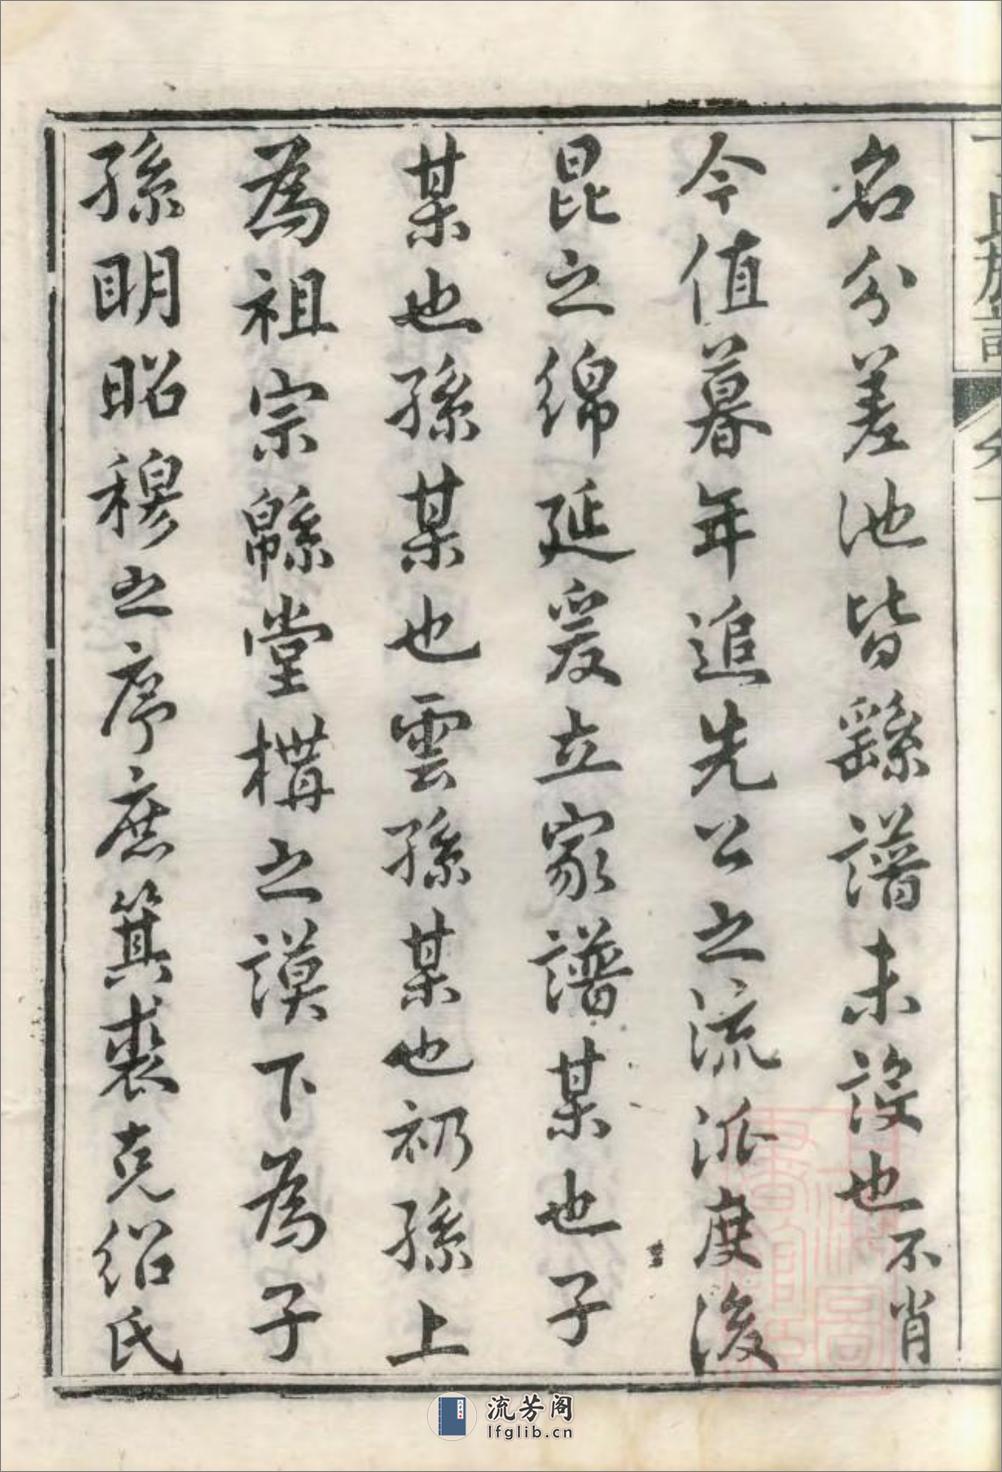 名分差池皆繇譜未設也不肖
今值暮年追先公之流派度後
昆之綿延爰立家譜某也子
某也孫某也雲孫某也礽孫上
為祖宗繇堂構之謨下為子
孫明昭穆之序庶箕裘克紹氏
流芳阁
lfglib.cn